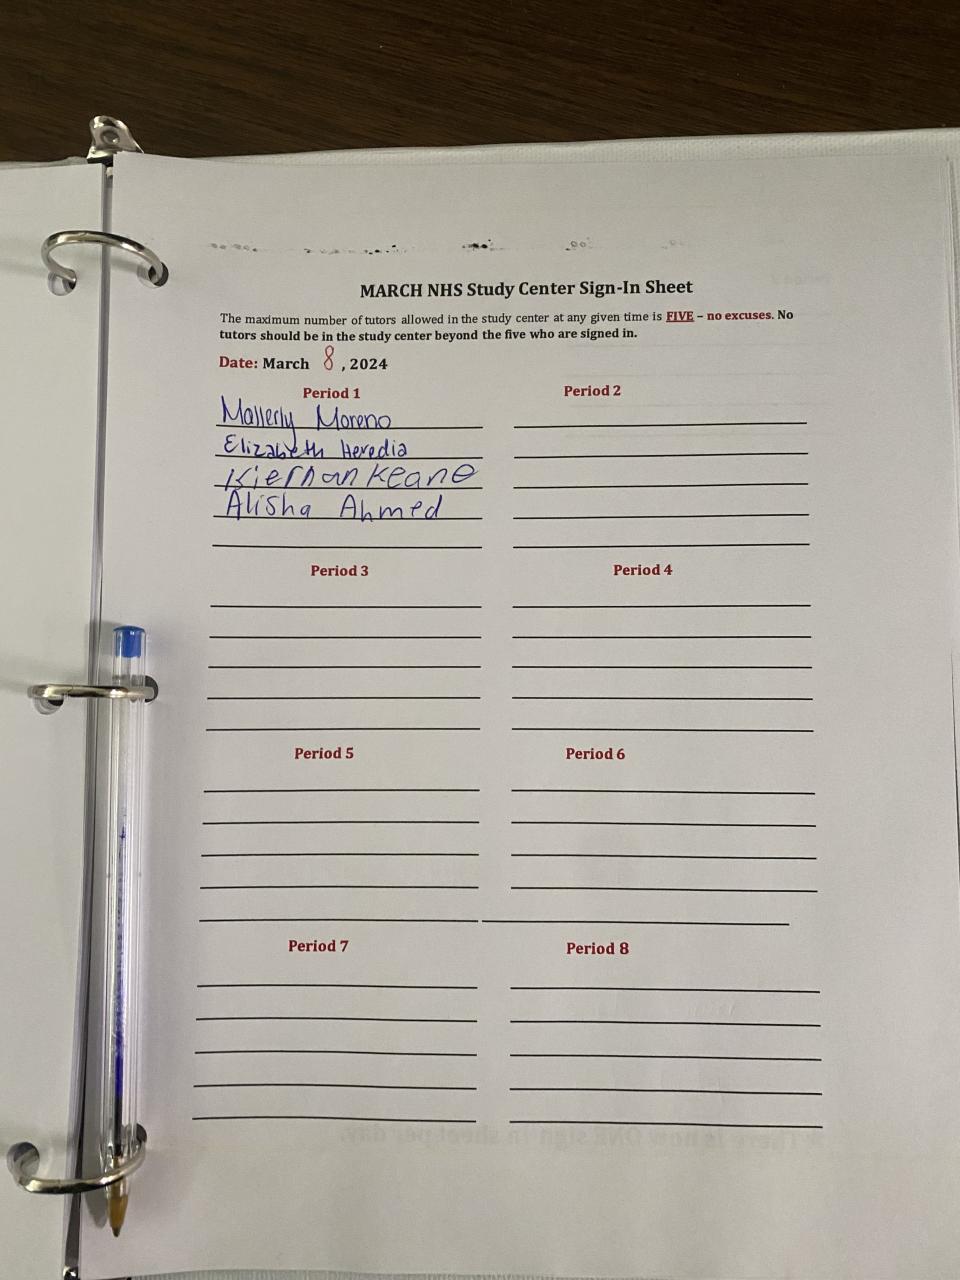 MARCH NHS Study Center Sign-In Sheet
The maximum number of tutors allowed in the study center at any given time is FIVE – no excuses. No
tutors should be in the study center beyond the five who are signed in.
Date: March 8, 2024
Period 1
Mallerly Moreno
Elizabeth Heredia
Kiernan Keane
Alisha Ahmed
Period 2
Period 3
Period 4
Period 5
Period 6
Period 7
Period 8
There is now ONE sign in sheet per day.